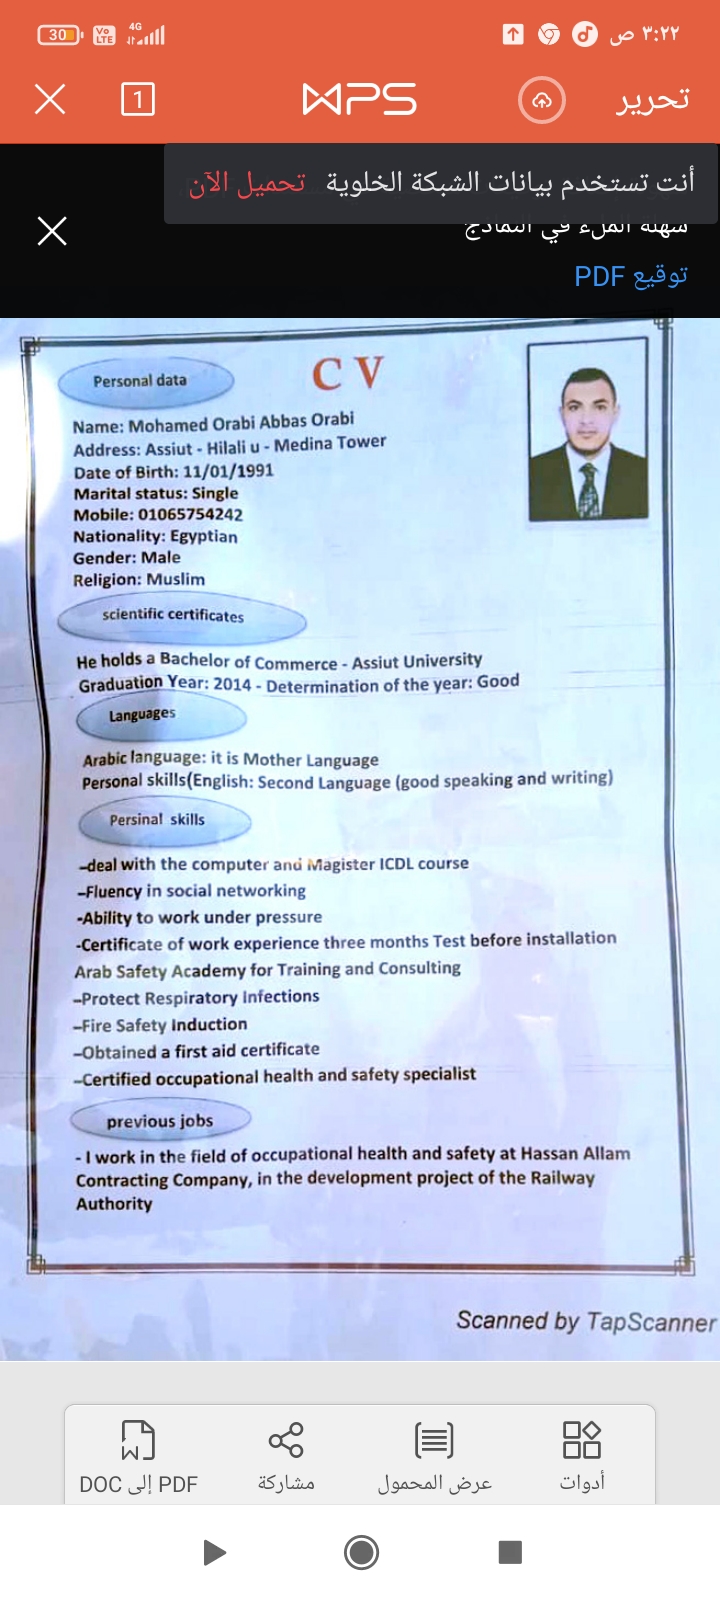 30 Vo LTE 4G ٣:٢٢ ص
1 WPS تحرير
أنت تستخدم بيانات الشبكة الخلوية تحميل الآن
سهلة الملء في النماذج
توقيع PDF
Personal data
C V
Name: Mohamed Orabi Abbas Orabi
Address: Assiut - Hilali u - Medina Tower
Date of Birth: 11/01/1991
Marital status: Single
Mobile: 01065754242
Nationality: Egyptian
Gender: Male
Religion: Muslim
scientific certificates
He holds a Bachelor of Commerce - Assiut University
Graduation Year: 2014 - Determination of the year: Good
Languages
Arabic language: it is Mother Language
Personal skills(English: Second Language (good speaking and writing)
Persinal skills
-deal with the computer and Magister ICDL course
-Fluency in social networking
-Ability to work under pressure
-Certificate of work experience three months Test before installation
Arab Safety Academy for Training and Consulting
-Protect Respiratory Infections
-Fire Safety Induction
-Obtained a first aid certificate
-Certified occupational health and safety specialist
previous jobs
- I work in the field of occupational health and safety at Hassan Allam
Contracting Company, in the development project of the Railway
Authority
Scanned by TapScanner
أدوات
عرض المحمول
مشاركة
PDF إلى DOC